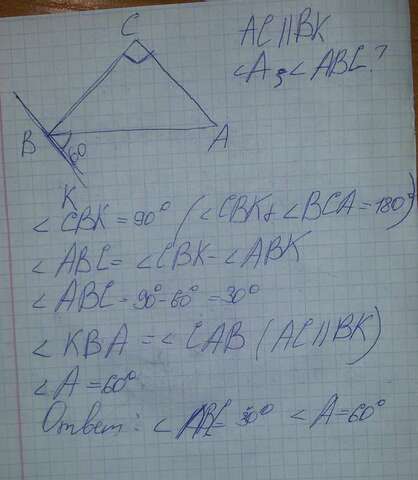 C
AC||BK
<A; <ABC?
B
60
A
K
<CBK = 90° (<CBK + <BCA = 180°)
<ABC = <CBK - <ABK
<ABC = 90° - 60° = 30°
<KBA = <CAB (AC||BK)
<A = 60°
Ответ: <ABC = 30° <A = 60°